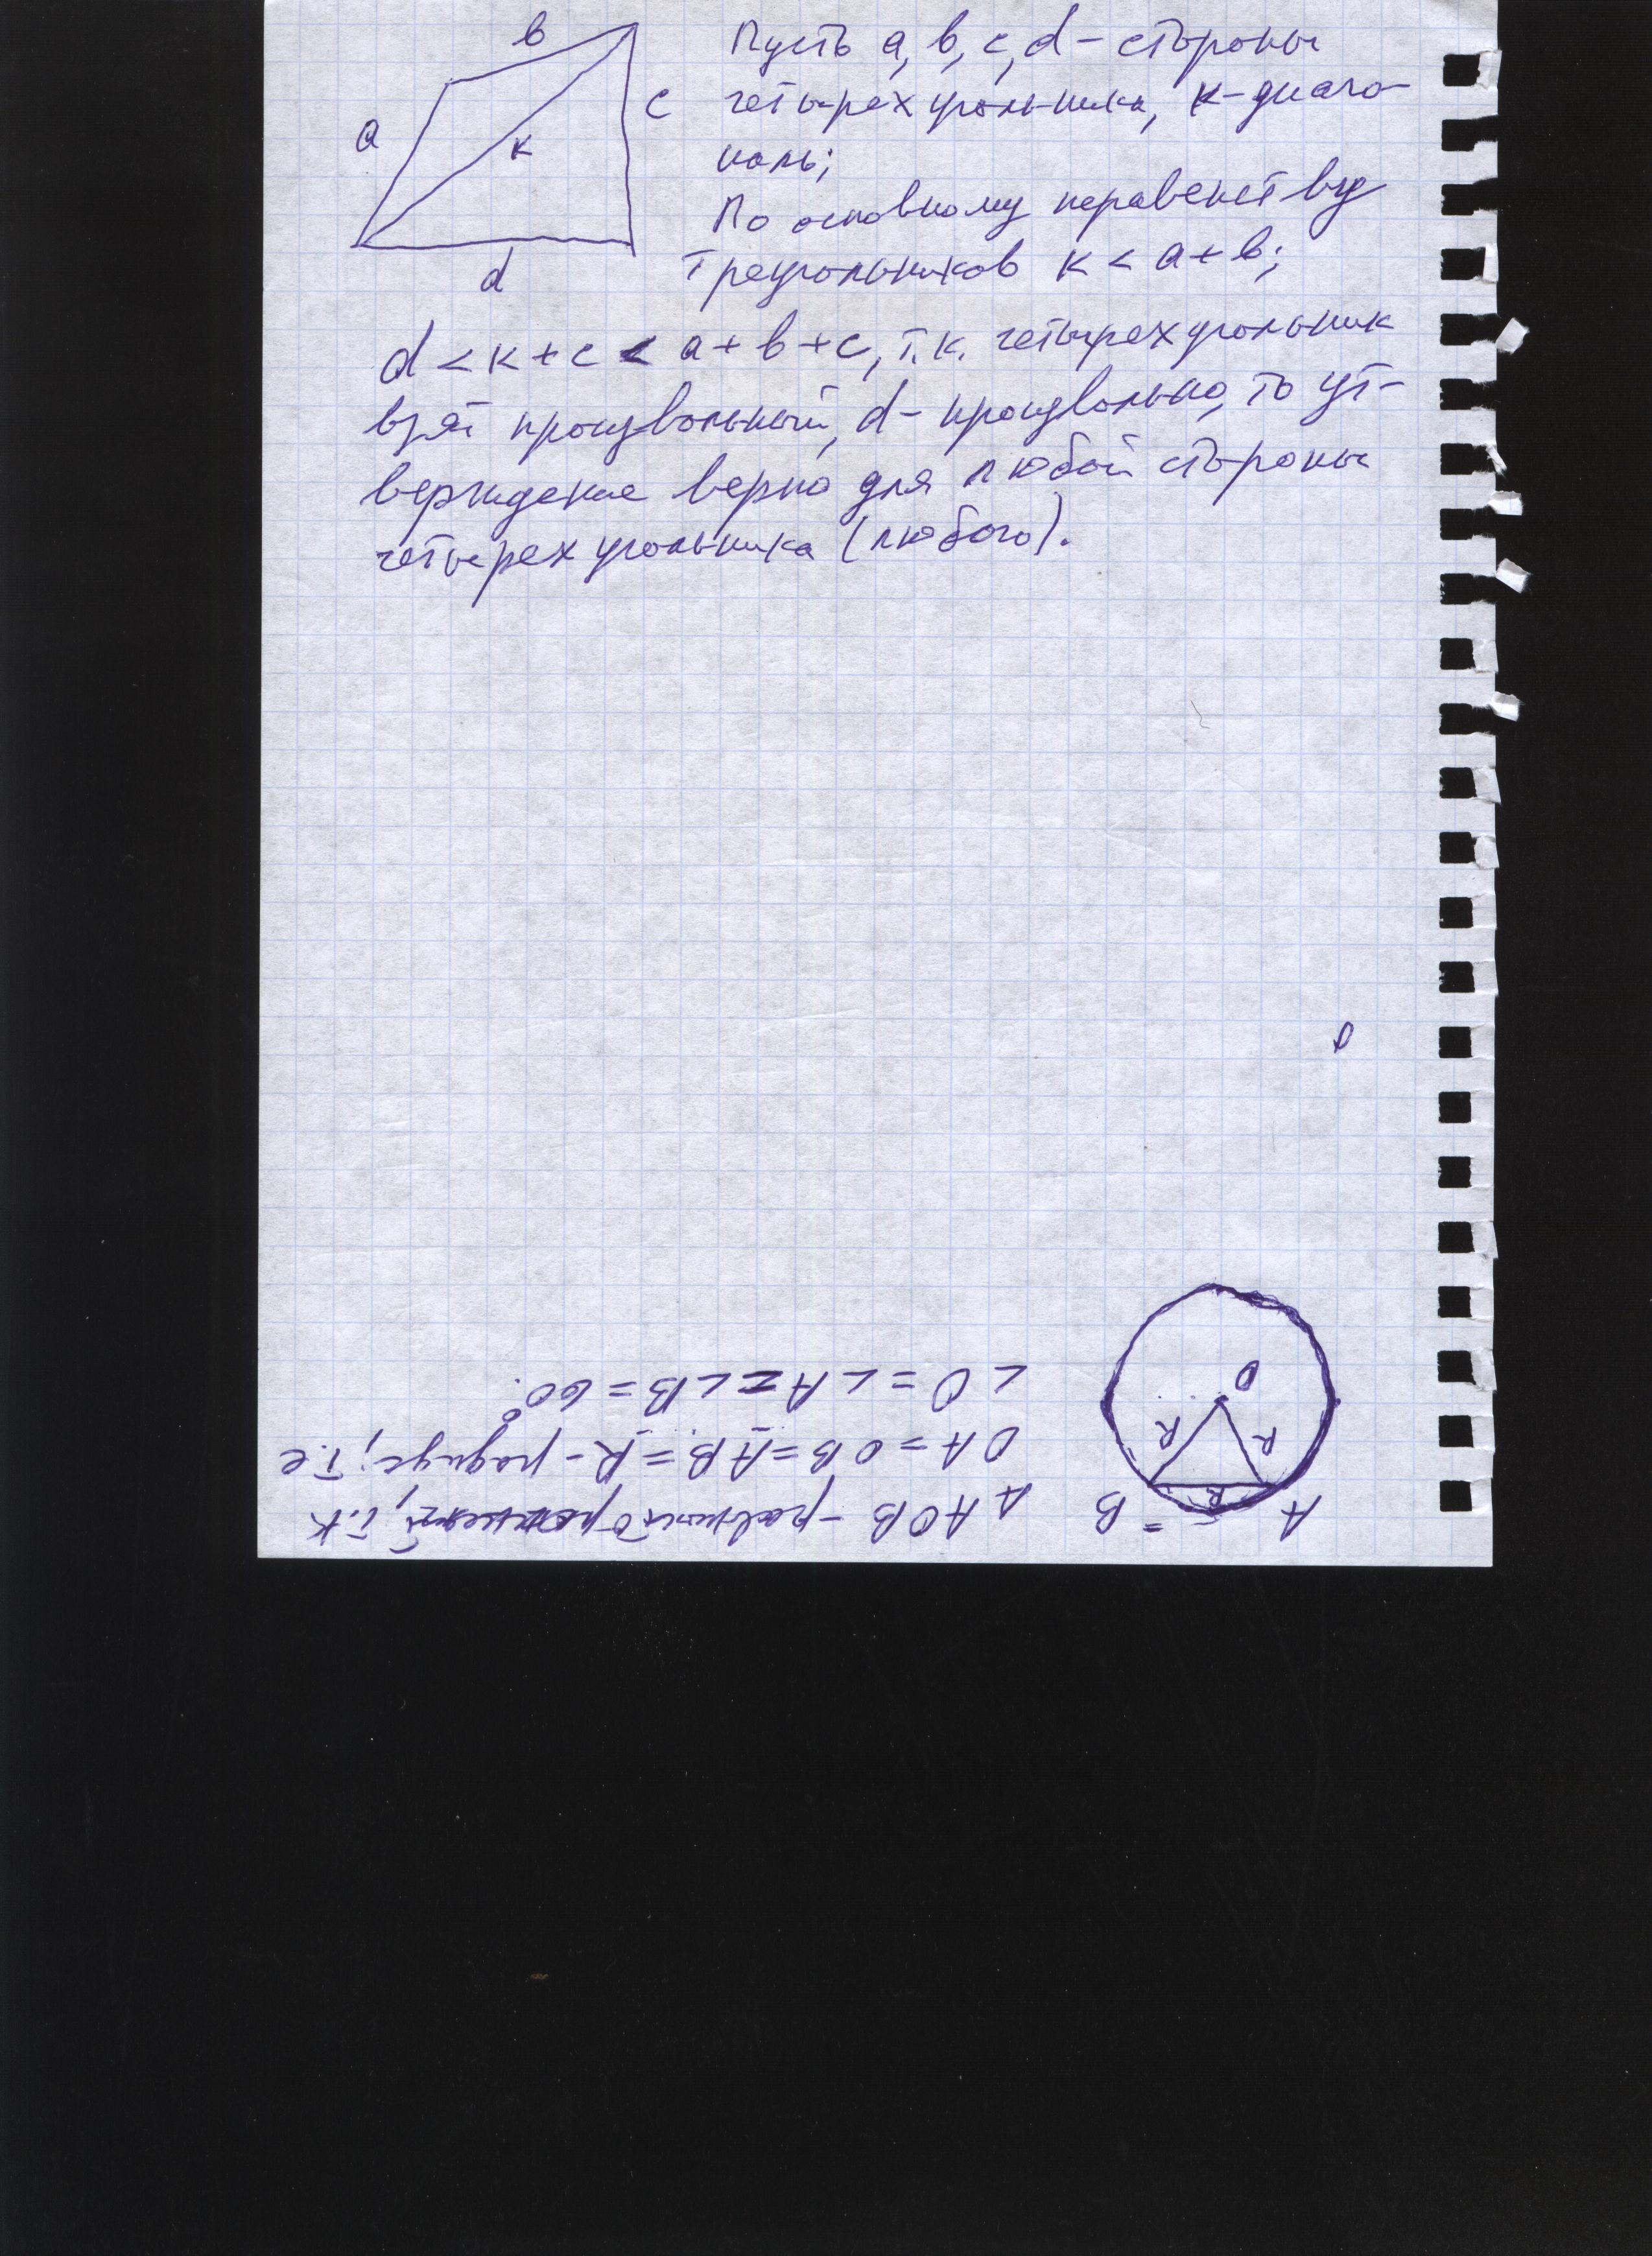 в
a
к
c
d
Пусть a, в, c, d - стороны
четырехугольника, к-диаго-
наль;
По основному неравенству
треугольников к < a + в;
d < к + c < a + в + c, т.к. четырехугольник
взят произвольный, d - произвольно, то ут-
верждение верно для любой стороны
четырехугольника (любого).
A = B
R
R
R
O
Δ AOB - равносторонний, т.к
OA = OB = AB = R - радиус, т.е
∠O = ∠A = ∠B = 60°.